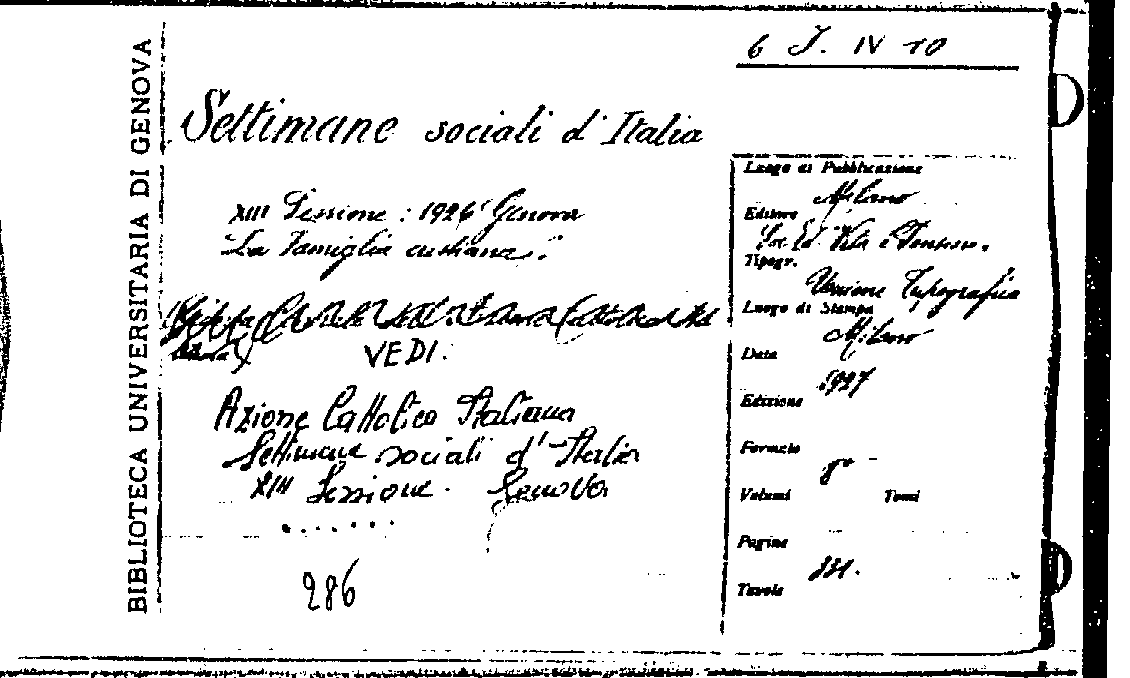 BIBLIOTECA UNIVERSITARIA DI GENOVA
6 J. IV 10
Settimane sociali d'Italia
XIII Sessione : 1926 Genova
La Famiglia cristiana.
VEDI:
Azione Cattolica Italiana
Settimane sociali d'Italia
XIII Sessione. Genova
. . . . . . .
286
Luogo di Pubblicazione
Milano
Editore
Ed. Vita e Pensiero.
Tipogr.
Unione Tipografica
Luogo di Stampa
Milano
Data
1927
Edizione
Formato
8°
Volumi Tomi
Pagine
Tavole